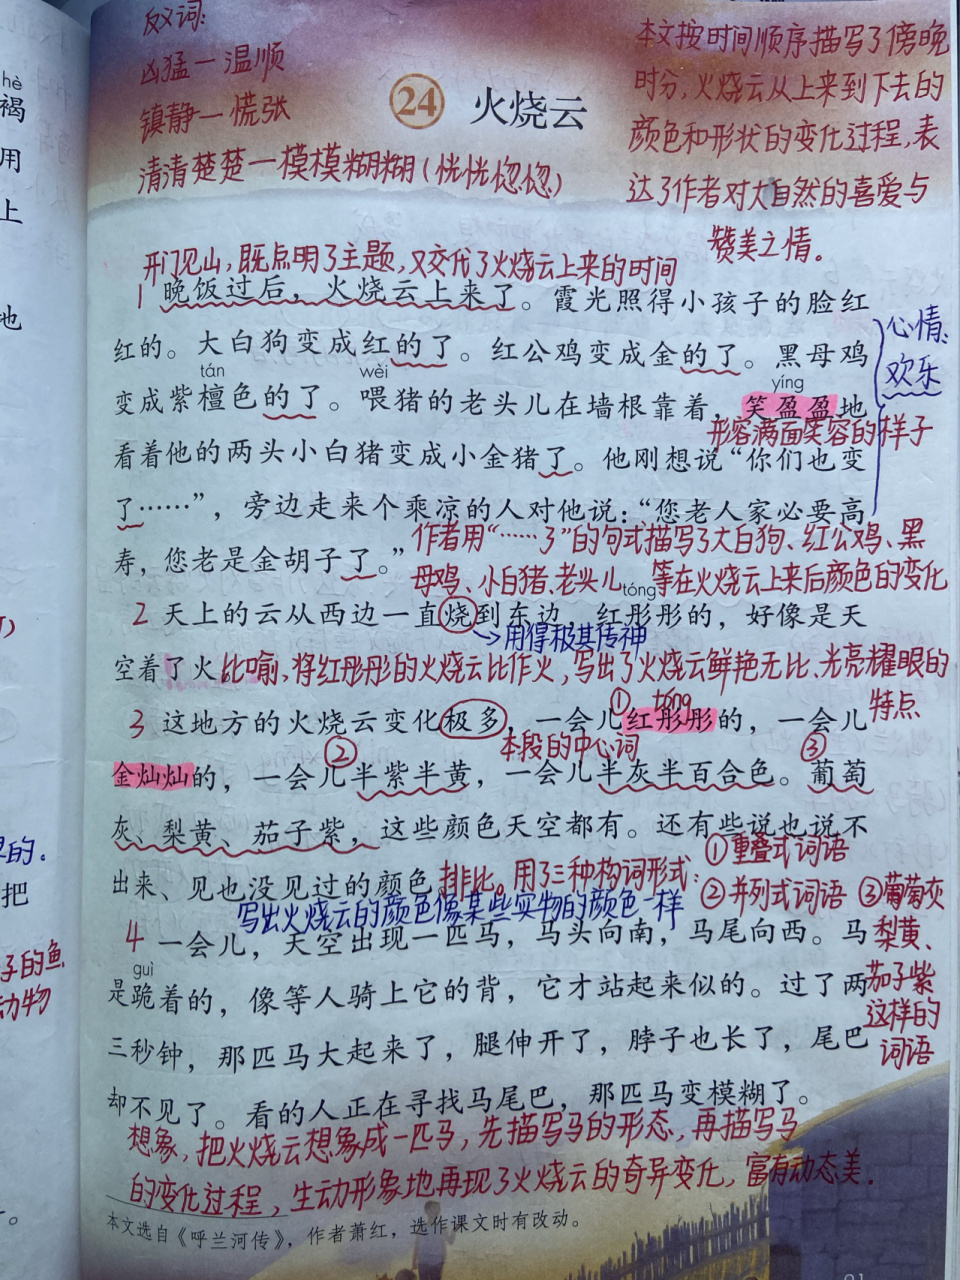 反义词:
凶猛一温顺
镇静一慌张
清清楚楚一模模糊糊(恍恍惚惚)
24 火烧云
本文按时间顺序描写了傍晚
时分,火烧云从上来到下去的
颜色和形状的变化过程,表
达了作者对大自然的喜爱与
赞美之情。
hè
褐
用
上
地
开门见山,既点明了主题,又交代了火烧云上来的时间
1 晚饭过后，火烧云上来了。霞光照得小孩子的脸红
红的。大白狗变成红的了。红公鸡变成金的了。黑母鸡
tán wèi yíng
变成紫檀色的了。喂猪的老头儿在墙根靠着，笑盈盈地
心情:
欢乐
形容满面笑容的样子
看着他的两头小白猪变成小金猪了。他刚想说“你们也变
了……”，旁边走来个乘凉的人对他说：“您老人家必要高
寿，您老是金胡子了。”
作者用“……了”的句式描写了大白狗、红公鸡、黑
母鸡、小白猪、老头儿等在火烧云上来后颜色的变化
tóng
2 天上的云从西边一直烧到东边，红彤彤的，好像是天
用得极其传神
空着了火
比喻,将红彤彤的火烧云比作火,写出了火烧云鲜艳无比、光亮耀眼的
特点
① tóng
3 这地方的火烧云变化极多，一会儿红彤彤的，一会儿
本段的中心词
② ③
金灿灿的，一会儿半紫半黄，一会儿半灰半百合色。葡萄
灰、梨黄、茄子紫，这些颜色天空都有。还有些说也说不
出来、见也没见过的颜色
排比。用了三种构词形式:①重叠式词语
②并列式词语 ③葡萄灰
梨黄、
茄子紫
这样的
词语
写出火烧云的颜色像某些实物的颜色一样
4 一会儿，天空出现一匹马，马头向南，马尾向西。马
guì
是跪着的，像等人骑上它的背，它才站起来似的。过了两
三秒钟，那匹马大起来了，腿伸开了，脖子也长了，尾巴
却不见了。看的人正在寻找马尾巴，那匹马变模糊了。
想象,把火烧云想象成一匹马,先描写马的形态,再描写马
的变化过程,生动形象地再现了火烧云的奇异变化,富有动态美.
本文选自《呼兰河传》，作者萧红，选作课文时有改动。
的.
把
子的鱼
动物